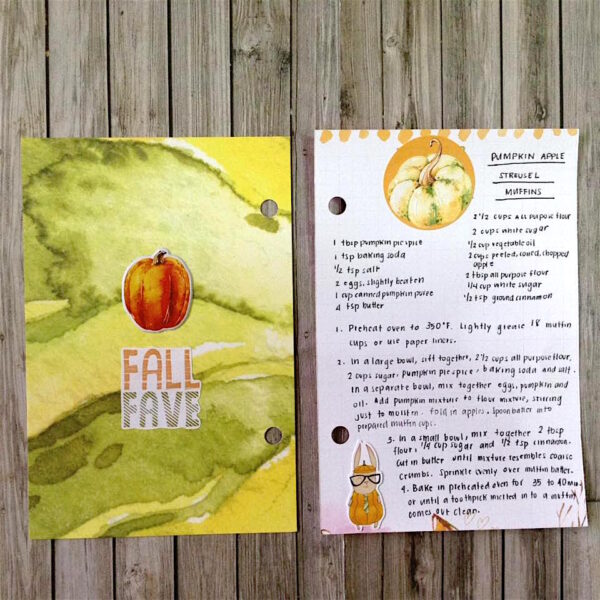 FALL
FAVE
PUMPKIN APPLE
STREUSEL
MUFFINS
2 1/2 cups all purpose flour
2 cups white sugar
1/2 cup vegetable oil
2 cups peeled, cored, chopped
apple
2 tbsp all purpose flour
1/4 cup white sugar
1/2 tsp ground cinnamon
1 tbsp pumpkin pie spice
1 tsp baking soda
1/2 tsp salt
2 eggs, slightly beaten
1 cup canned pumpkin puree
4 tsp butter
1. Preheat oven to 350°F. Lightly grease 18 muffin
cups or use paper liners.
2. In a large bowl, sift together, 2 1/2 cups all purpose flour,
2 cups sugar, pumpkin pie spice, baking soda and salt.
In a separate bowl, mix together eggs, pumpkin and
oil. Add pumpkin mixture to flour mixture, stirring
just to moisten. Fold in apples. Spoon batter into
prepared muffin cups.
3. In a small bowl, mix together 2 tbsp
flour, 1/4 cup sugar and 1/2 tsp cinnamon.
Cut in butter until mixture resembles coarse
crumbs. Sprinkle evenly over muffin batter.
4. Bake in preheated oven for 35 to 40 min
or until a toothpick inserted in to a muffin
comes out clean.